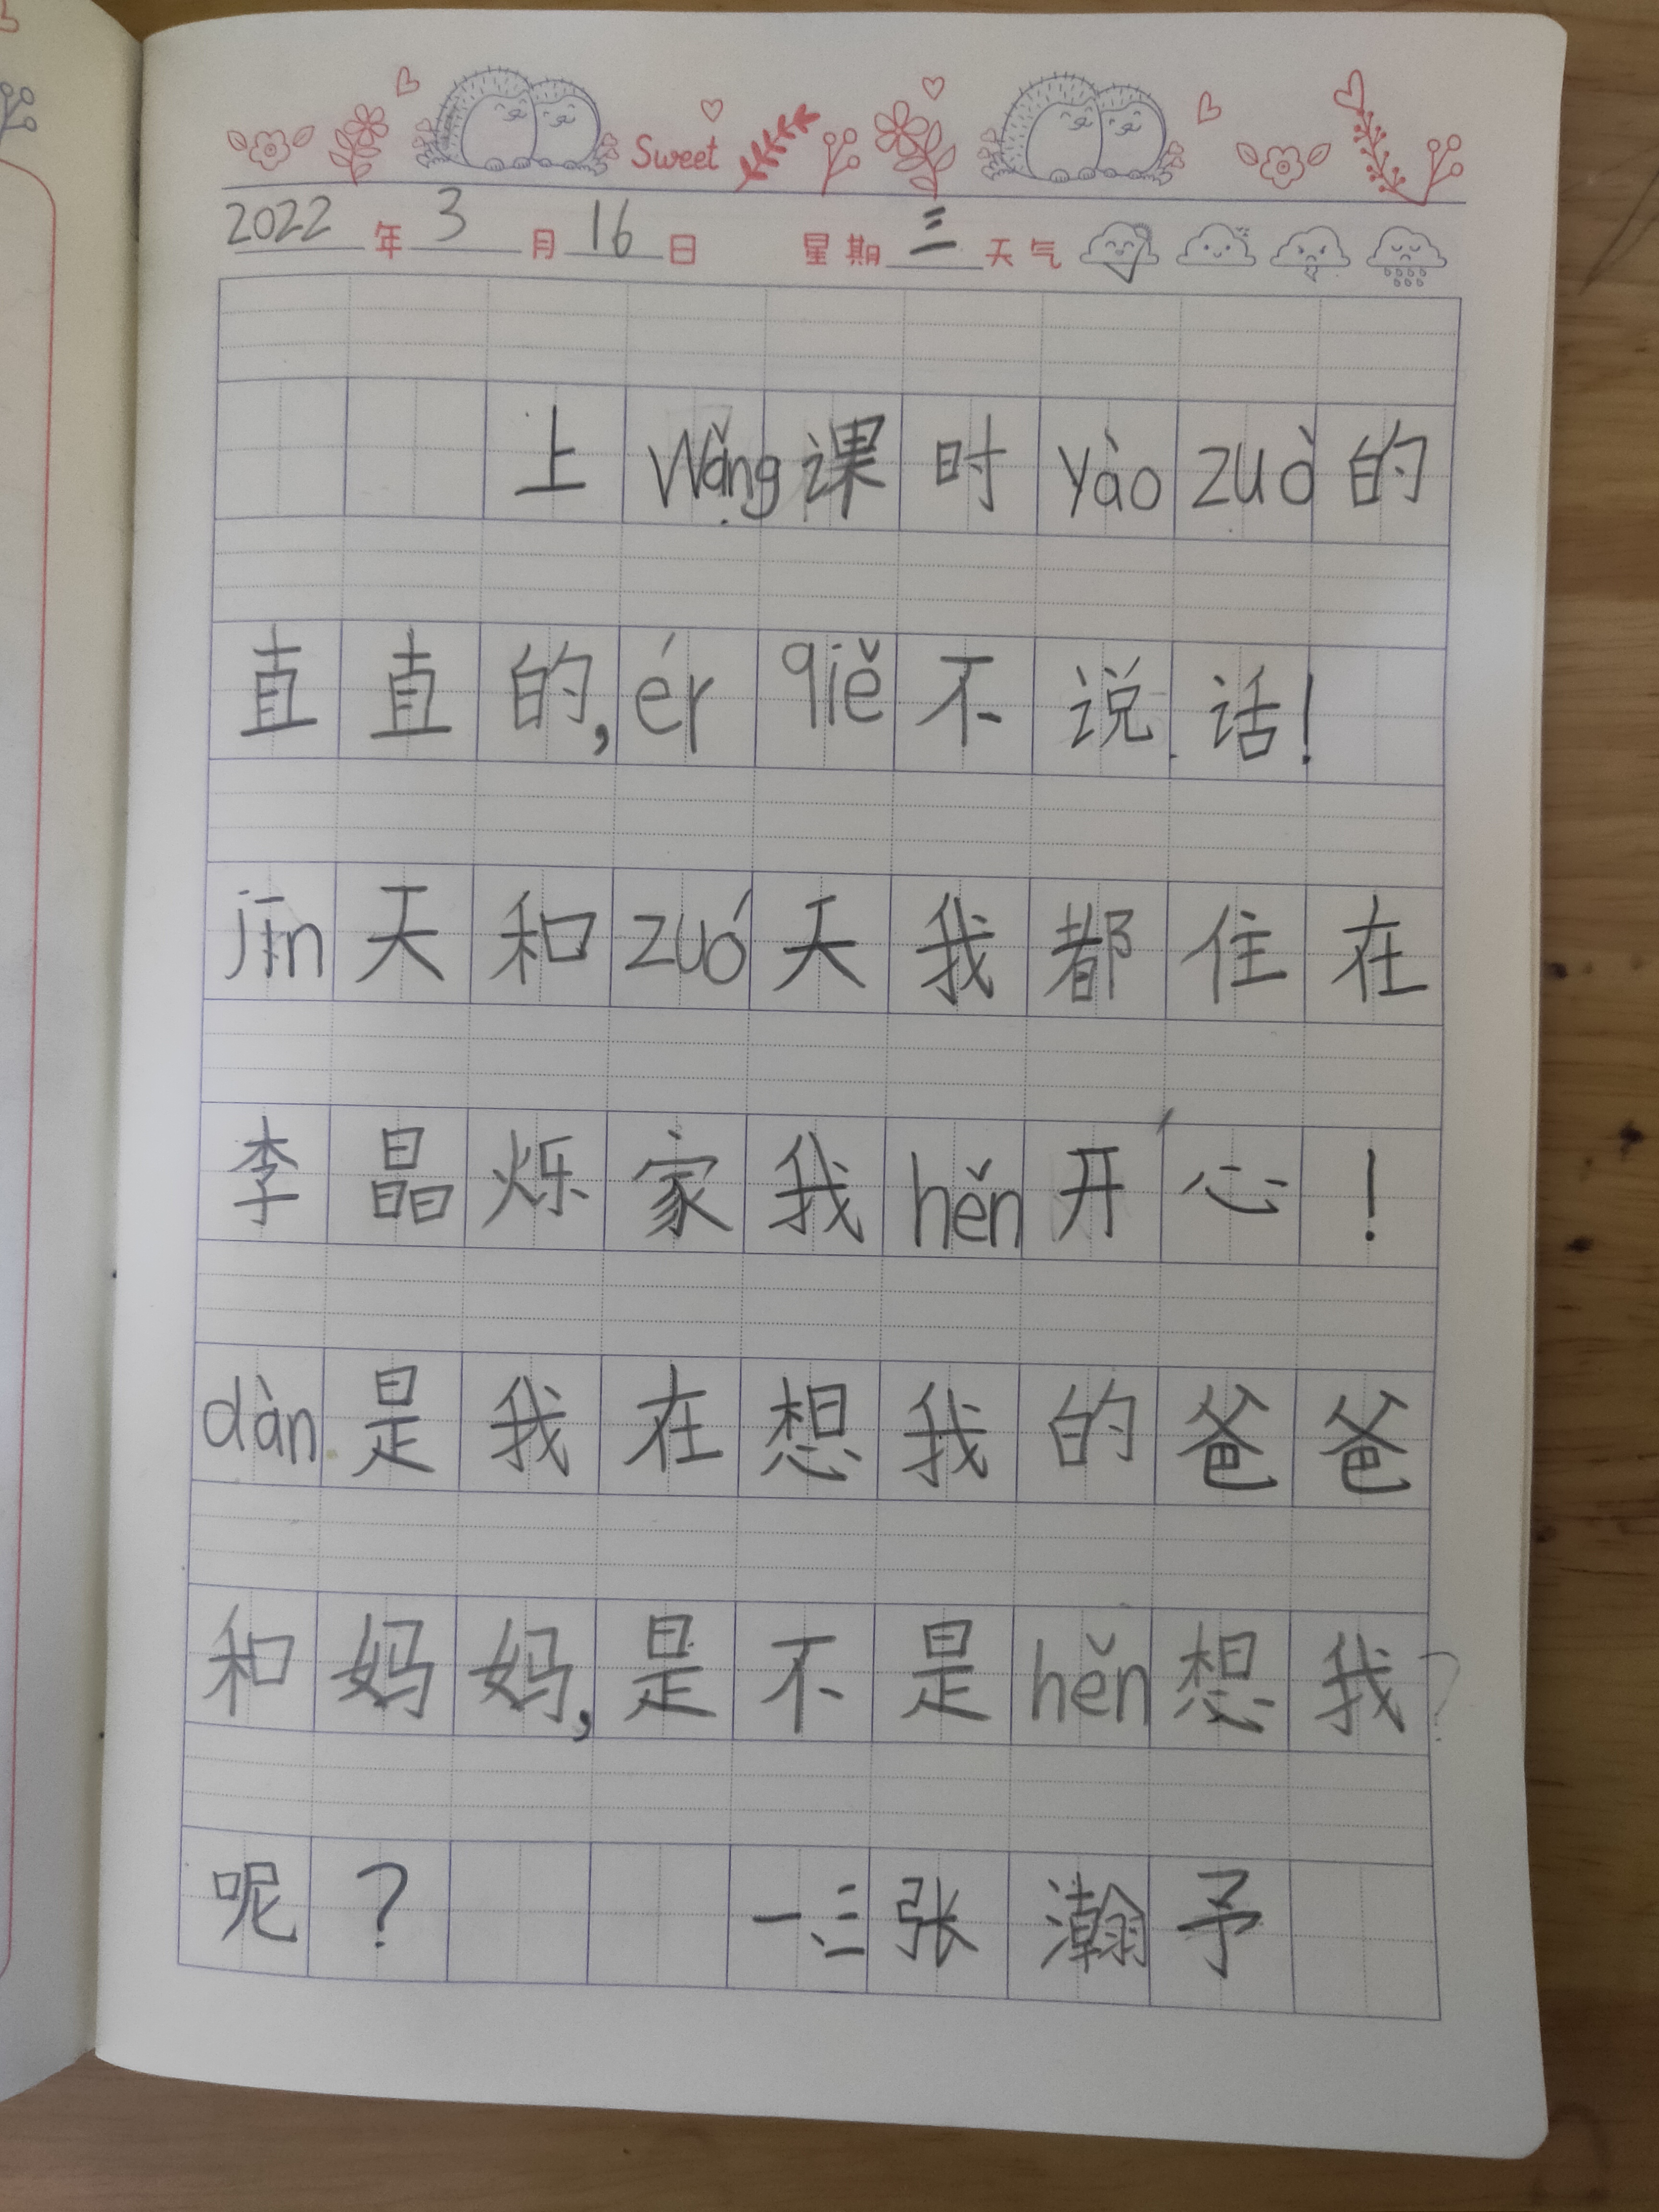 Sweet
2022年3月16日 星期三 天气
上wǎng课时yào zuò的
直直的,ér qiě不说话!
jīn天和zuó天我都住在
李晶烁家我hěn开心!
dàn是我在想我的爸爸
和妈妈,是不是hěn想我?
呢? 一三张瀚予